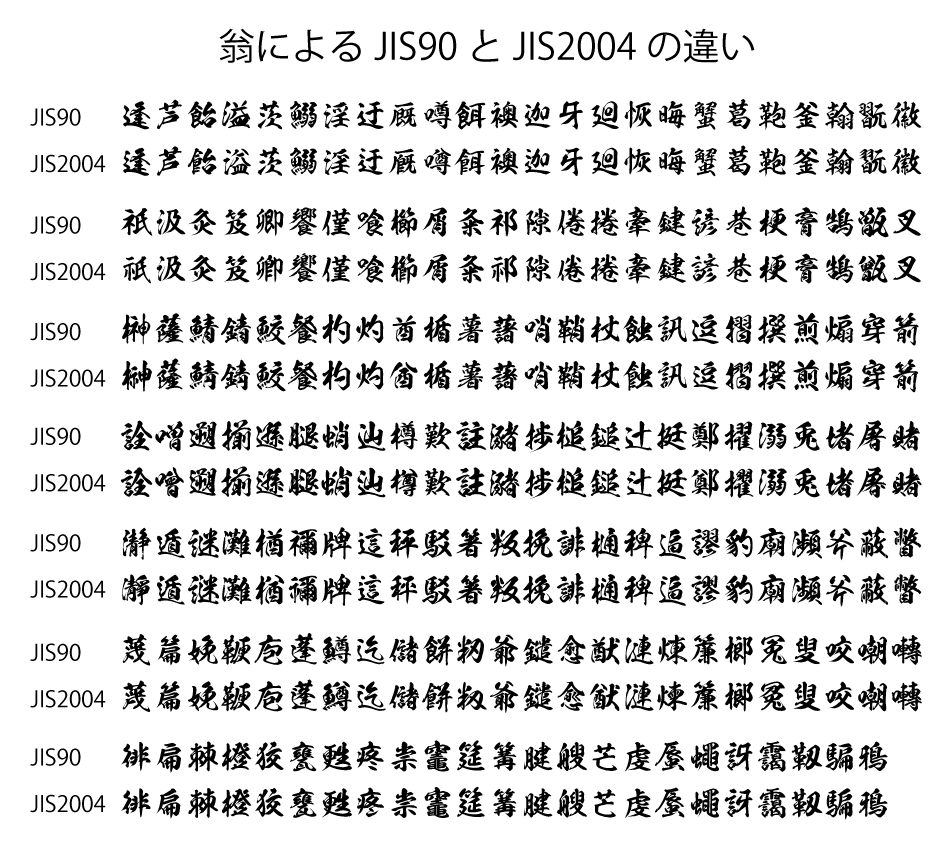 翁による JIS90 と JIS2004 の違い
JIS90 逢芦飴溢茨鰯淫迂厩噂餌襖迦牙廻恢晦蟹葛鞄釜翰翫徽
JIS2004 逢芦飴溢茨鰯淫迂厩噂餌襖迦牙廻恢晦蟹葛鞄釜翰翫徽
JIS90 祇汲灸笈卿饗僅喰櫛屑粂祁隙倦捲牽鍵諺巷梗膏鵠甑叉
JIS2004 祇汲灸笈卿饗僅喰櫛屑粂祁隙倦捲牽鍵諺巷梗膏鵠甑叉
JIS90 榊薩鯖錆鮫餐杓灼酋楯薯藷哨鞘杖蝕訊逗摺撰煎煽穿箭
JIS2004 榊薩鯖錆鮫餐杓灼酋楯薯藷哨鞘杖蝕訊逗摺撰煎煽穿箭
JIS90 詮噌遡揃遜腿蛸辿樽歎註瀦捗槌鎚辻挺鄭擢溺兎堵屠賭
JIS2004 詮噌遡揃遜腿蛸辿樽歎註瀦捗槌鎚辻挺鄭擢溺兎堵屠賭
JIS90 瀞遁謎灘楢禰牌這秤駁箸叛挽誹樋稗逼謬豹廟瀕斧蔽瞥
JIS2004 瀞遁謎灘楢禰牌這秤駁箸叛挽誹樋稗逼謬豹廟瀕斧蔽瞥
JIS90 蔑篇娩鞭庖蓬鱒迄儲餅籾爺鑓愈猷漣煉簾榔冤叟咬嘲囀
JIS2004 蔑篇娩鞭庖蓬鱒迄儲餅籾爺鑓愈猷漣煉簾榔冤叟咬嘲囀
JIS90 徘扁棘橙狡甕甦疼祟竈筵篝腱艘芒虔蜃蠅訝靄靱騙鴉
JIS2004 徘扁棘橙狡甕甦疼祟竈筵篝腱艘芒虔蜃蠅訝靄靱騙鴉